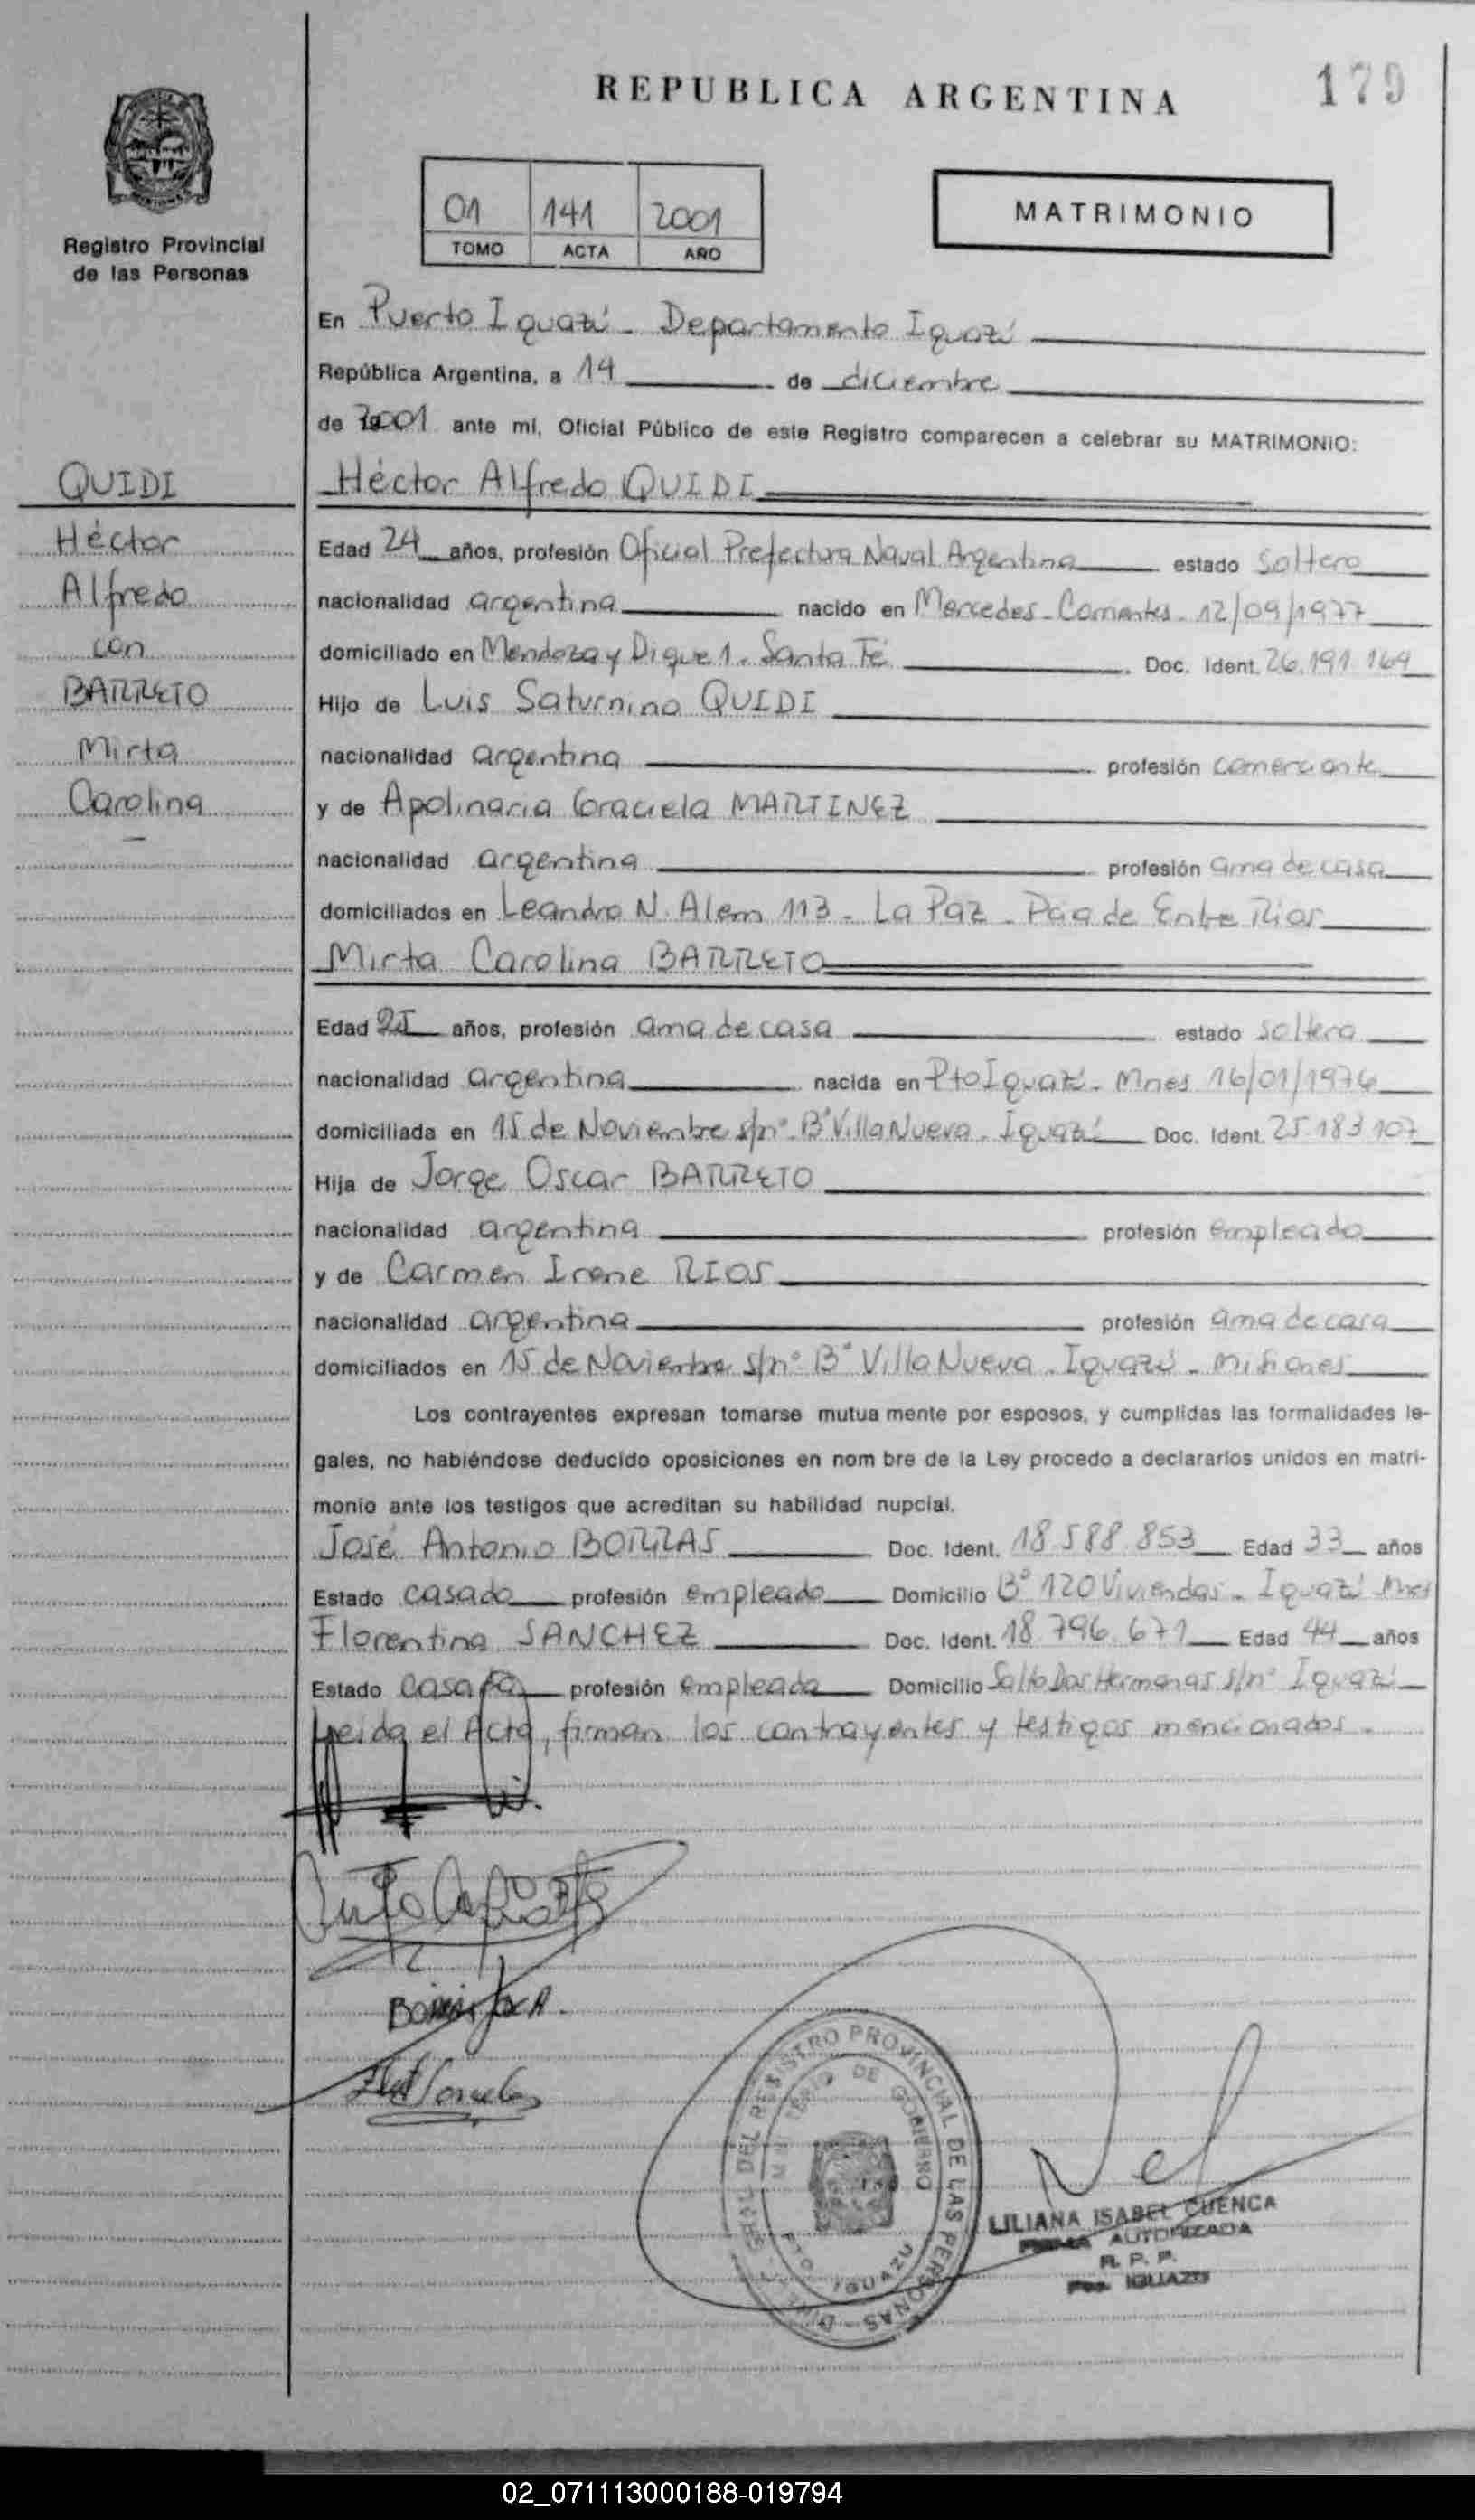 REPUBLICA ARGENTINA
179
Registro Provincial
de las Personas
01 141 2001
TOMO ACTA AÑO
MATRIMONIO
QUIDI
Héctor
Alfredo
con
BARRETO
Mirta
Carolina
En Puerto Iguazú - Departamento Iguazú
República Argentina, a 14 de diciembre
de 2001 ante mí, Oficial Público de este Registro comparecen a celebrar su MATRIMONIO:
Héctor Alfredo QUIDI
Edad 24 años, profesión Oficial Prefectura Naval Argentina estado soltero
nacionalidad argentina nacido en Mercedes - Corrientes - 12/09/1977
domiciliado en Mendoza y Dique 1 - Santa Fé Doc. Ident. 26.191.164
Hijo de Luis Saturnino QUIDI
nacionalidad argentina profesión comerciante
y de Apolinaria Graciela MARTINEZ
nacionalidad argentina profesión ama de casa
domiciliados en Leandro N. Alem 113 - La Paz - Pcia de Entre Rios
Mirta Carolina BARRETO
Edad 25 años, profesión ama de casa estado soltera
nacionalidad argentina nacida en Pto Iguazú - Mnes 16/01/1976
domiciliada en 15 de Noviembre s/nº Bº Villa Nueva - Iguazú Doc. Ident. 25.183.107
Hija de Jorge Oscar BARRETO
nacionalidad argentina profesión empleado
y de Carmen Irene RIOS
nacionalidad argentina profesión ama de casa
domiciliados en 15 de Noviembre s/nº Bº Villa Nueva - Iguazú - Misiones
Los contrayentes expresan tomarse mutua mente por esposos, y cumplidas las formalidades le-
gales, no habiéndose deducido oposiciones en nom bre de la Ley procedo a declararlos unidos en matri-
monio ante los testigos que acreditan su habilidad nupcial.
José Antonio BORRAS Doc. Ident. 18.588.853 Edad 33 años
Estado casado profesión empleado Domicilio Bº 120 Viviendas - Iguazú Mnes
Florentina SANCHEZ Doc. Ident. 18.796.671 Edad 44 años
Estado casada profesión empleada Domicilio Salto Dos Hermanas s/nº Iguazú
Leida el Acta, firman los contrayentes y testigos mencionados.
REGISTRO PROVINCIAL DE LAS PERSONAS
MINISTERIO DE GOBIERNO
PTO IGUAZU
LILIANA ISABEL CUENCA
FIRMA AUTORIZADA
R. P. P.
Pto. IGUAZU
02_071113000188-019794